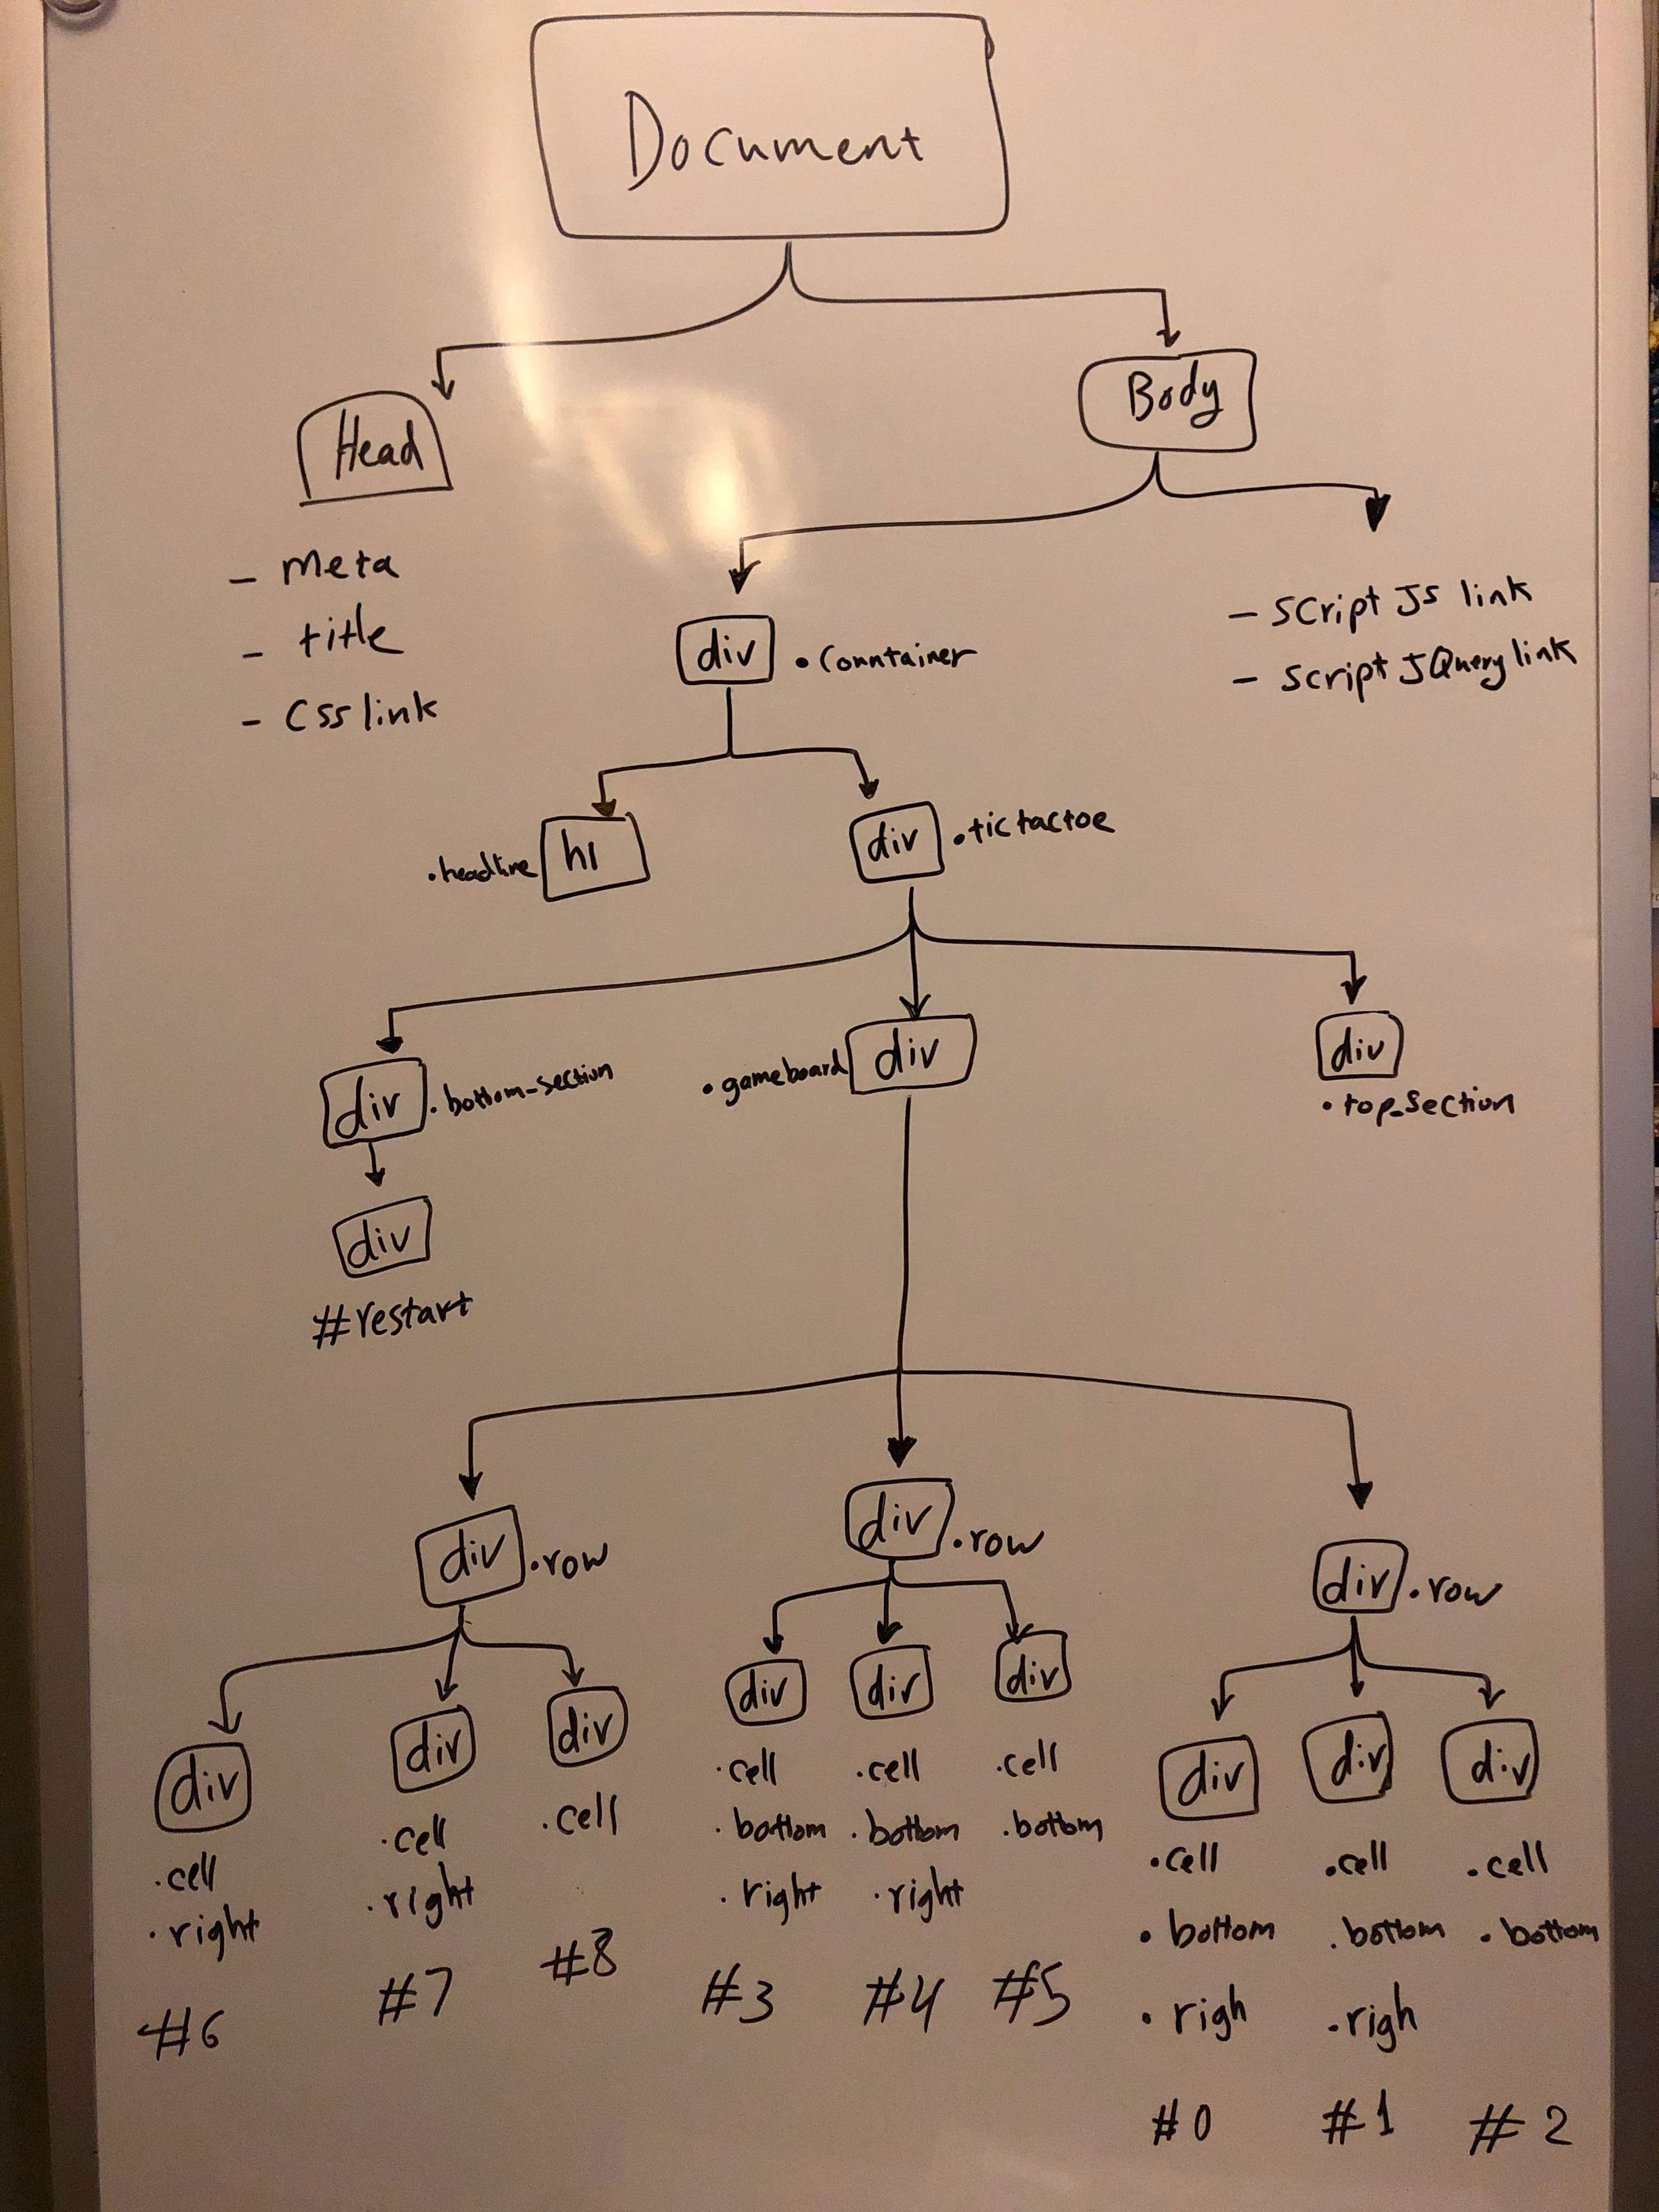 Document
Head
Body
- meta
- title
- Css link
- Script JS link
- Script JQuery link
div .Conntainer
.headline h1
div .tictactoe
div .bottom-section
.gameboard div
div
.top_section
div
#restart
div .row
div .row
div .row
div
.cell
.right
#6
div
.cell
.right
#7
div
.cell
#8
div
.cell
.bottom
.right
#3
div
.cell
.bottom
.right
#4
div
.cell
.bottom
#5
div
.cell
.bottom
.righ
#0
div
.cell
.bottom
.righ
#1
div
.cell
.bottom
#2